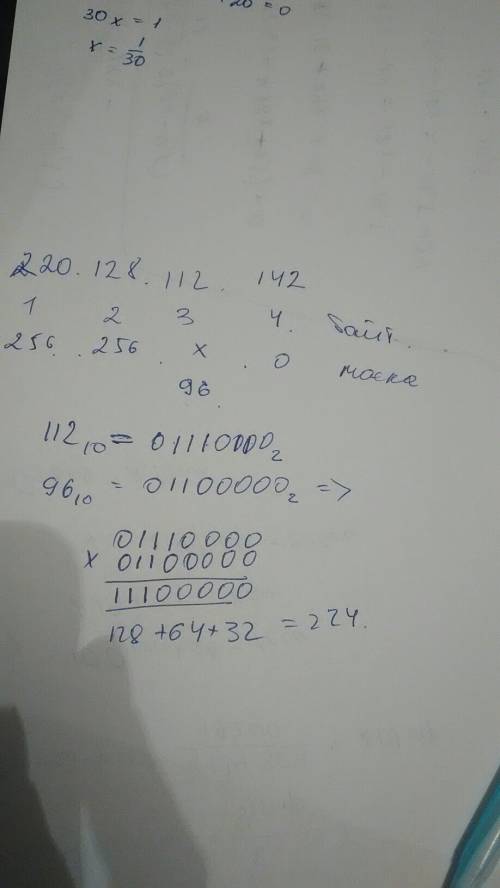 20 = 0
30x = 1
x = 1/30
220. 128. 112. 142
1 2 3 4. байт.
256. . 256 . x . 0 маска
96.
112₁₀ = 01110000₂
96₁₀ = 01100000₂ =>
01110000
x 01100000
11100000
128 + 64 + 32 = 224.